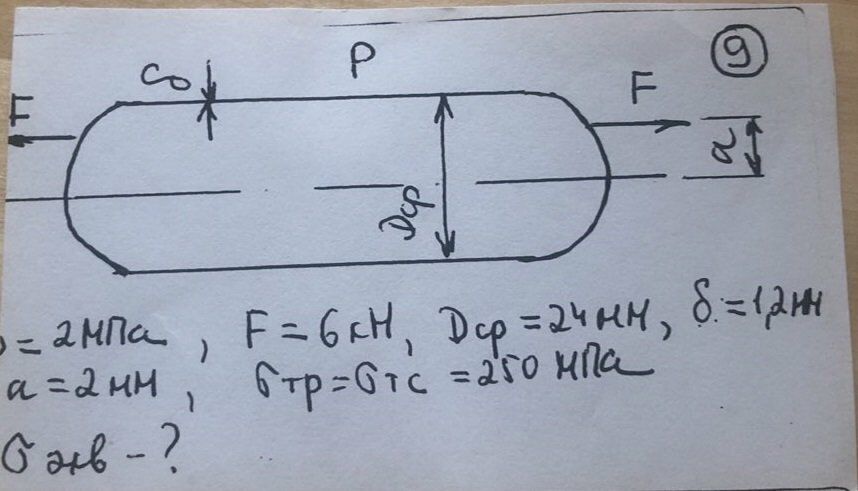 P
9
F
F
δ
a
Dср
p = 2 МПа, F = 6 кН, Dср = 24 мм, δ = 1,2 мм
a = 2 мм, σтр = σтс = 250 МПа
σэкв - ?